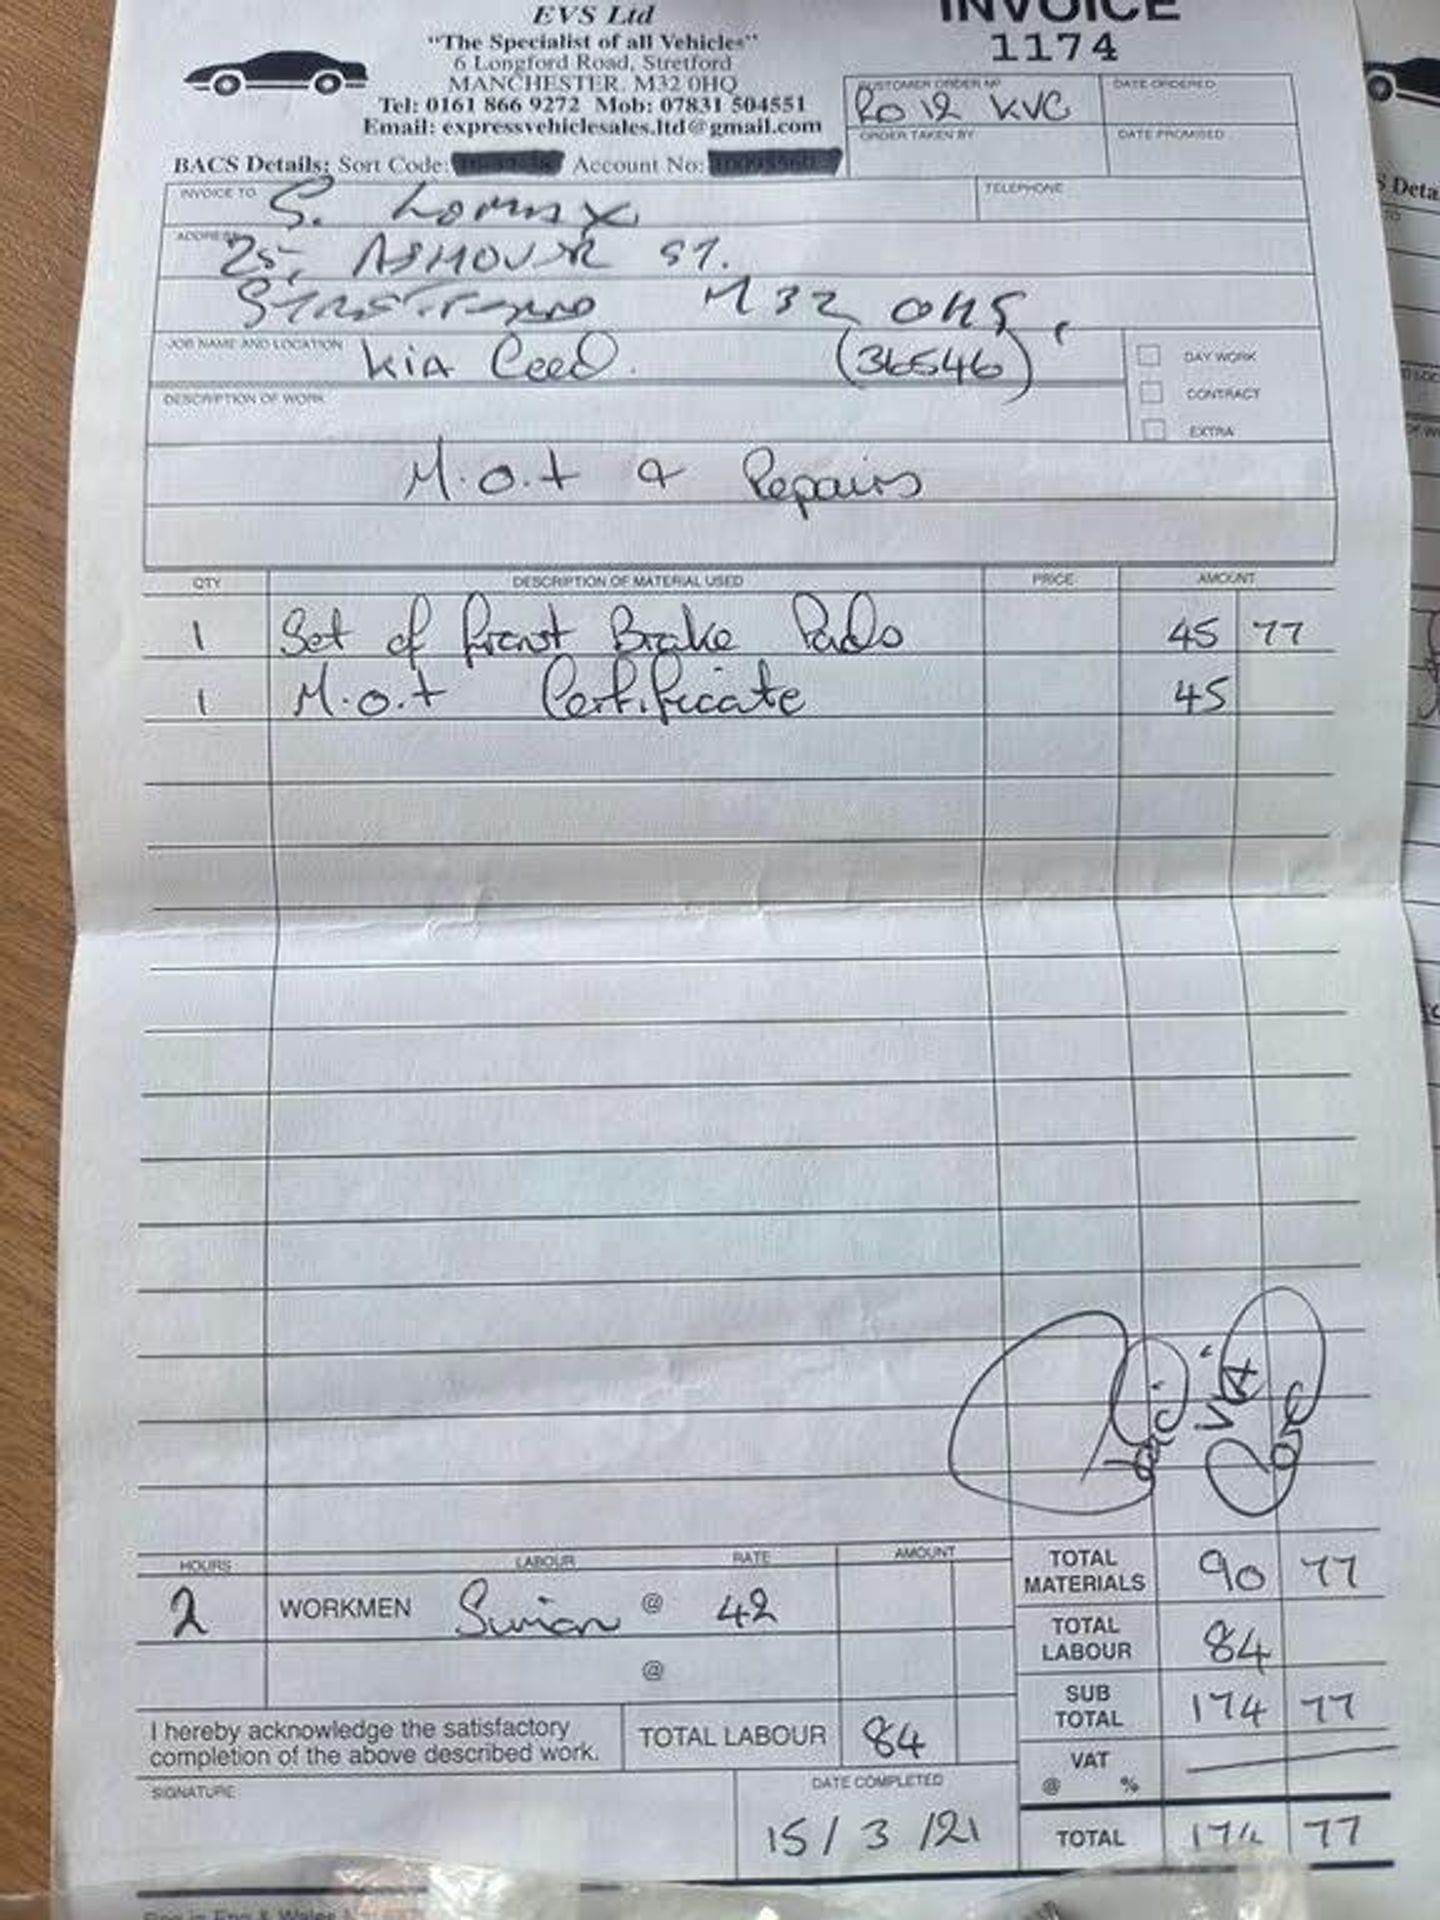 EVS Ltd
INVOICE
"The Specialist of all Vehicles"
1174
6 Longford Road, Stretford
MANCHESTER. M32 0HQ
Tel: 0161 866 9272 Mob: 07831 504551
Email: expressvehiclesales.ltd@gmail.com
CUSTOMER ORDER Nº
RO12 KVC
DATE ORDERED
ORDER TAKEN BY
DATE PROMISED
BACS Details: Sort Code: Account No:
INVOICE TO S. Lomax
TELEPHONE
ADDRESS 25, ST.
M32
JOB NAME AND LOCATION Kia Ceed. (36546)
DAY WORK
CONTRACT
EXTRA
DESCRIPTION OF WORK
M.O.t & Repairs
QTY DESCRIPTION OF MATERIAL USED PRICE AMOUNT
1 Set of front Brake Pads 45 77
1 M.o.t Certificate 45
HOURS LABOUR RATE AMOUNT
2 WORKMEN @ 42
@
TOTAL MATERIALS 90 77
TOTAL LABOUR 84
SUB TOTAL 174 77
VAT @ %
TOTAL 174 77
I hereby acknowledge the satisfactory
completion of the above described work.
TOTAL LABOUR 84
SIGNATURE
DATE COMPLETED
15/3/21